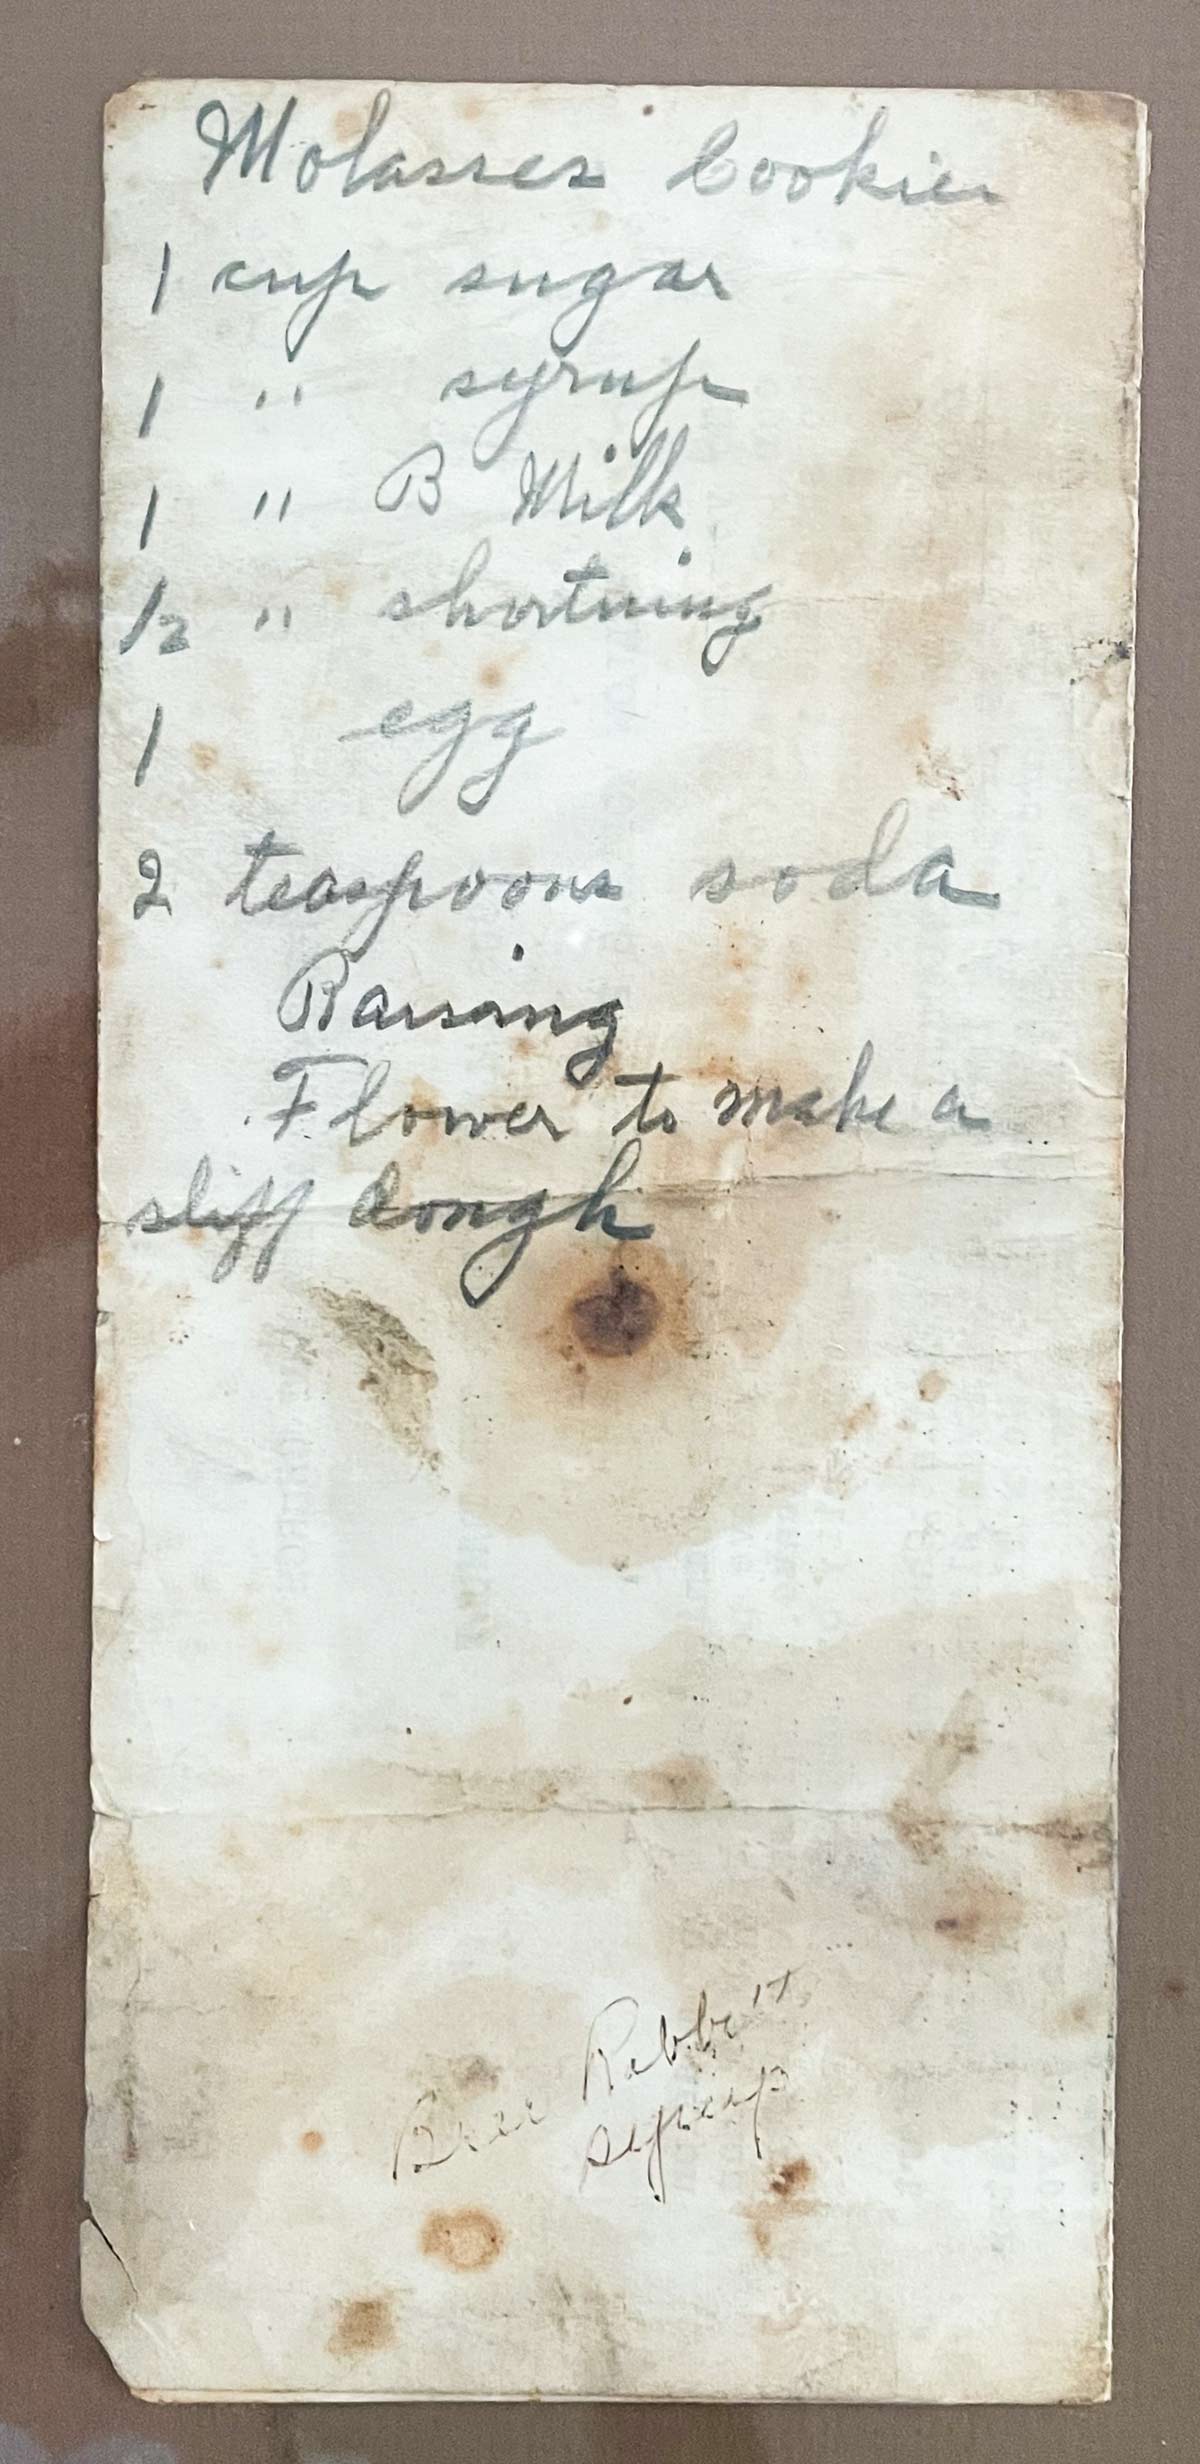 Molasses Cookies
1 cup sugar
1 " syrup
1 " B Milk
1/2 " shortning
1 egg
2 teaspoons soda
Raising
Flower to make a
stiff dough
Brer Rabbit
syrup